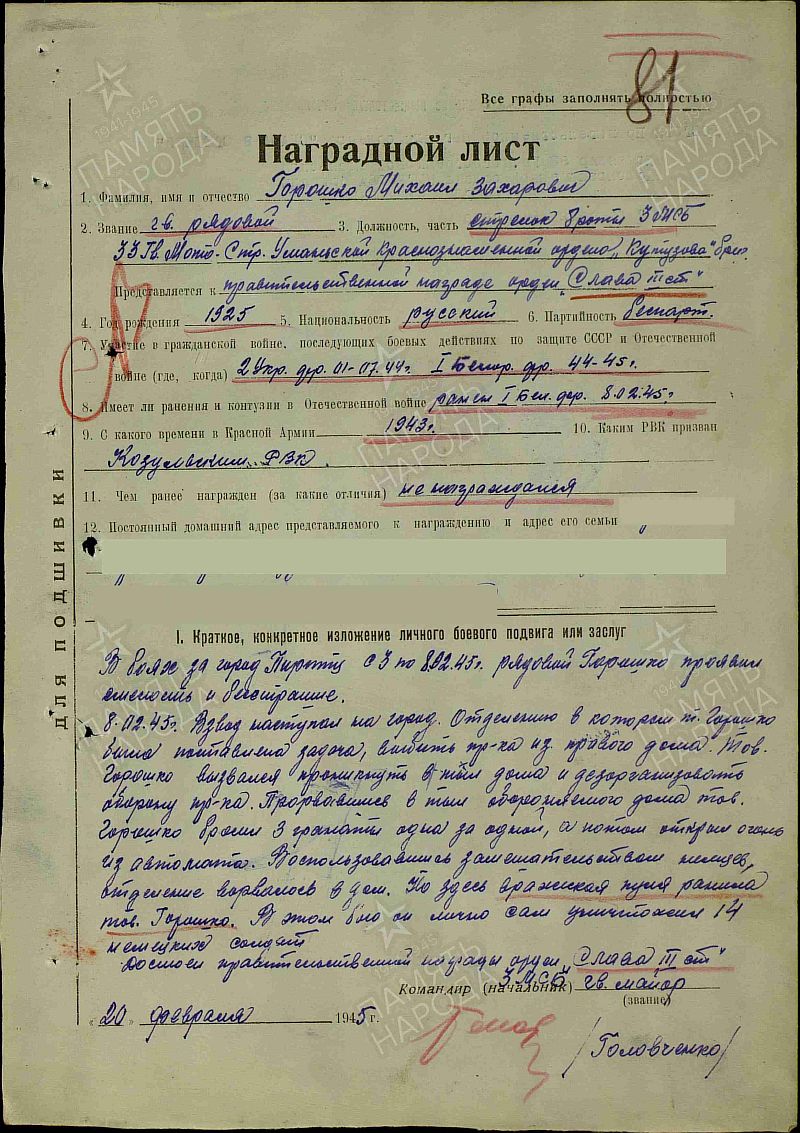 81
Все графы заполнять полностью
Наградной лист
1. Фамилия, имя и отчество Горошко Михаил Захарович
2. Звание гв. рядовой 3. Должность, часть стрелок роты 3 МСБ
33 Гв. Мото-Стр. Уманьской Краснознаменной ордена „Кутузова" бриг.
Представляется к правительственной награде орден „Слава III ст"
4. Год рождения 1925 5. Национальность русский 6. Партийность беспарт.
7. Участие в гражданской войне, последующих боевых действиях по защите СССР и Отечественной
войне (где, когда) 2 Укр. фр. 01-07.44г. I Белор. фр. 44-45г.
8. Имеет ли ранения и контузии в Отечественной войне ранен I Бел. фр. 8.02.45г.
9. С какого времени в Красной Армии 1943г. 10. Каким РВК призван
Козульским РВК.
11. Чем ранее награжден (за какие отличия) не награждался
12. Постоянный домашний адрес представляемого к награждению и адрес его семьи
ДЛЯ ПОДШИВКИ
I. Краткое, конкретное изложение личного боевого подвига или заслуг
В боях за город Пиритц с 3 по 8.02.45г. рядовой Горошко проявил
смелость и бесстрашие.
8.02.45г. Взвод наступал на город. Отделению в котором т. Горошко
была поставлена задача, выбить пр-ка из правого дома. Тов.
Горошко вызвался проникнуть в тыл дома и дезорганизовать
оборону пр-ка. Прорвавшись в тыл обороняемого дома тов.
Горошко бросил 3 гранаты одна за одной, а потом открыл огонь
из автомата. Воспользовавшись замешательством немцев,
отделение ворвалось в дом. Но здесь вражеская пуля ранила
тов. Горошко. В этом бою он лично сам уничтожил 14
немецких солдат
Достоен правительственной награды орден „Слава III ст"
Командир (начальник) 3 МСБ гв. майор
(звание)
„20" февраля 1945 г.
/Головченко/